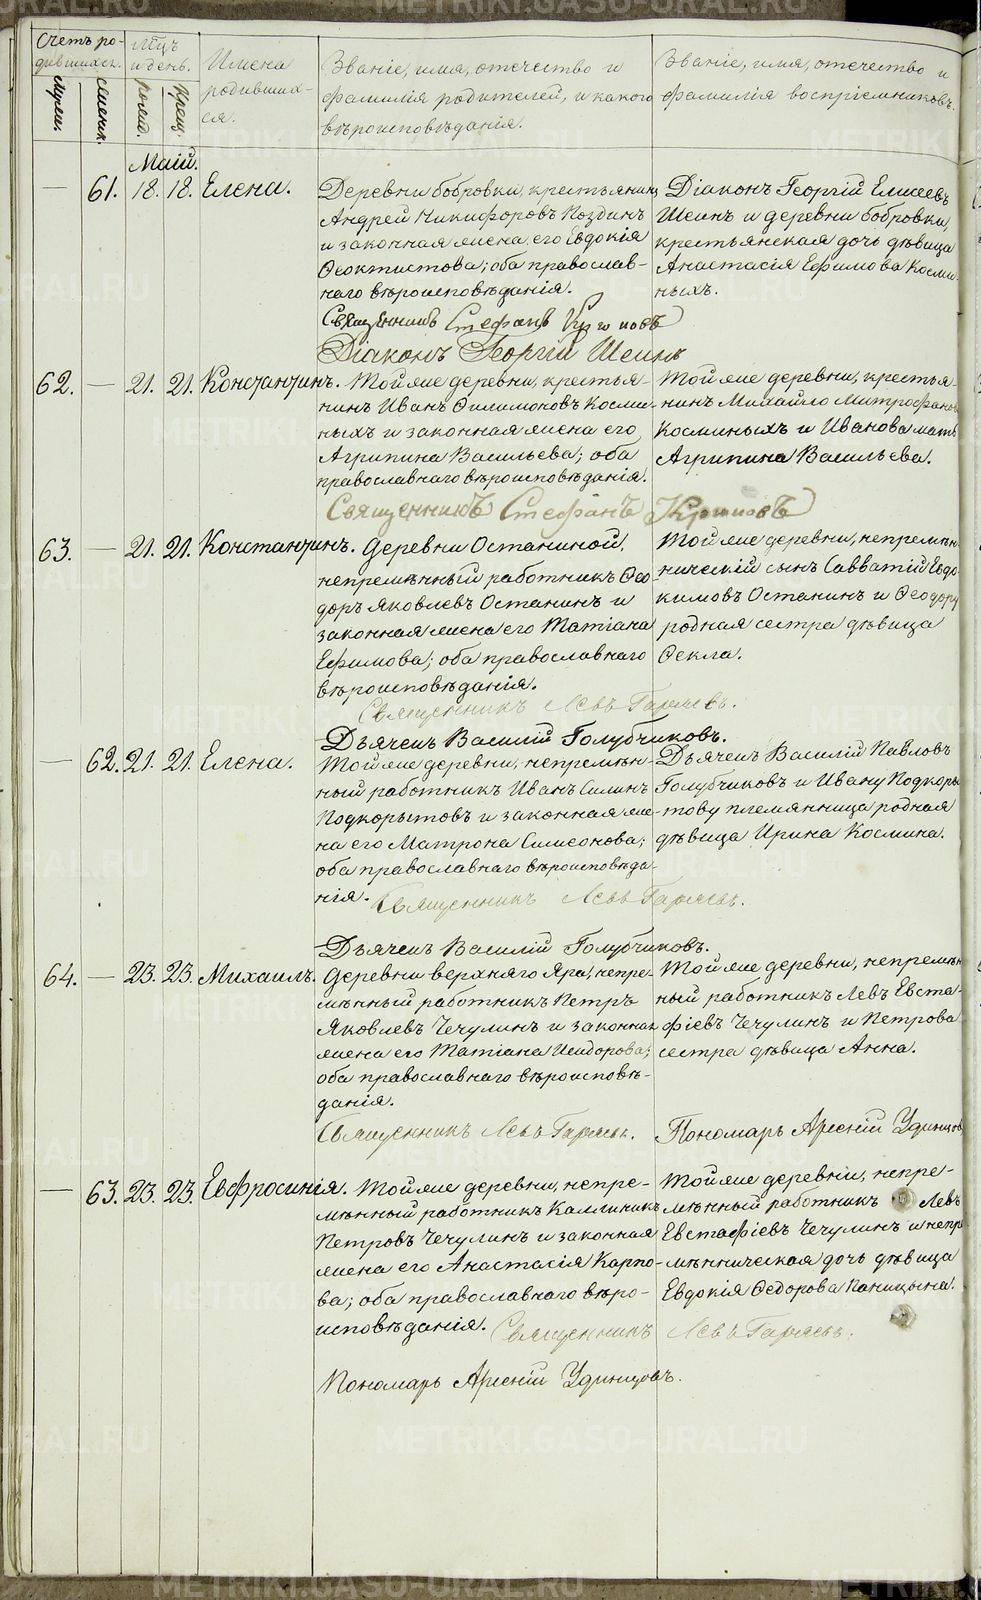 Счетъ ро-
дившихся.
Мѣцъ
и день.
Имена
родивших-
ся.
Званіе, имя, отчество и
фамилія родителей, и какого
вѣроисповѣданія.
Званіе, имя, отчество и
фамилія воспріемниковъ.
Муж.
женск.
рожд.
крещ.
Маій.
— 61. 18. 18. Елена.
Деревни бобровки, крестьянинъ
Андрей Никифоровъ Поздинъ
и законная жена его Евдокія
Ѳеоктистова; оба православ-
наго вѣроисповѣданія.
Діаконъ Георгій Елисеевъ
Шеинъ и деревни бобровки,
крестьянская дочь дѣвица
Анастасія Ефимова Косми-
ныхъ.
Священникъ Стефанъ
Діаконъ Георгій Шеинъ
62. — 21. 21. Константинъ.
Той же деревни, крестья-
нинъ Иванъ Филимоновъ Косми-
ныхъ и законная жена его
Агрипина Васильева; оба
православнаго вѣроисповѣданія.
Той же деревни, крестья-
нинъ Михайло Митрофановъ
Косминыхъ и Иванова мать
Агрипина Васильева.
Священникъ Стефанъ
63. — 21. 21. Константинъ.
Деревни Останиной,
непремѣнный работникъ Ѳео-
доръ Яковлевъ Останинъ и
законная жена его Татіана
Ефимова; оба православнаго
вѣроисповѣданія.
Той же деревни, непремѣн-
ническій сынъ Савватій Евдо-
кимовъ Останинъ и Ѳеодору
родная сестра дѣвица
Ѳекла.
Священникъ Левъ Гаряевъ.
Дьячекъ Василій Голубчиковъ.
— 62. 21. 21. Елена.
Той же деревни, непремѣн-
ный работникъ Иванъ Силинъ
Подкорытовъ и законная же-
на его Матрона Симеонова;
оба православнаго вѣроисповѣда-
нія.
Дьячекъ Василій Павловъ
Голубчиковъ и Ивану Подкоры-
тову племянница родная
дѣвица Ирина Космина.
Священникъ Левъ Гаряевъ.
Дьячекъ Василій Голубчиковъ.
64. — 23. 23. Михаилъ.
Деревни верхняго Яра, непре-
мѣнный работникъ Петръ
Яковлевъ Чечулинъ и законная
жена его Татіана Исидорова;
оба православнаго вѣроисповѣ-
данія.
Той же деревни, непремѣн-
ный работникъ Левъ Евста-
фіевъ Чечулинъ и Петрова
сестра дѣвица Анна.
Священникъ Левъ Гаряевъ.
Пономарь Арсеній Удинцовъ
— 63. 23. 23. Евфросинія.
Той же деревни, непре-
мѣнный работникъ Каллиникъ
Петровъ Чечулинъ и законная
жена его Анастасія Карпо-
ва; оба православнаго вѣро-
исповѣданія.
Той же деревни, непре-
мѣнный работникъ Левъ
Евстафіевъ Чечулинъ и непре-
мѣнническая дочь дѣвица
Евдокія Ѳедорова Паницына.
Священникъ Левъ Гаряевъ.
Пономарь Арсеній Удинцовъ.
METRIKI.GASO-URAL.RU